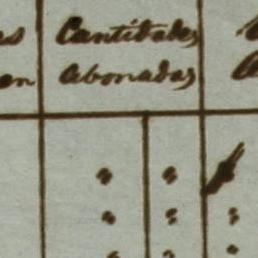 Cantidades
en abonadas